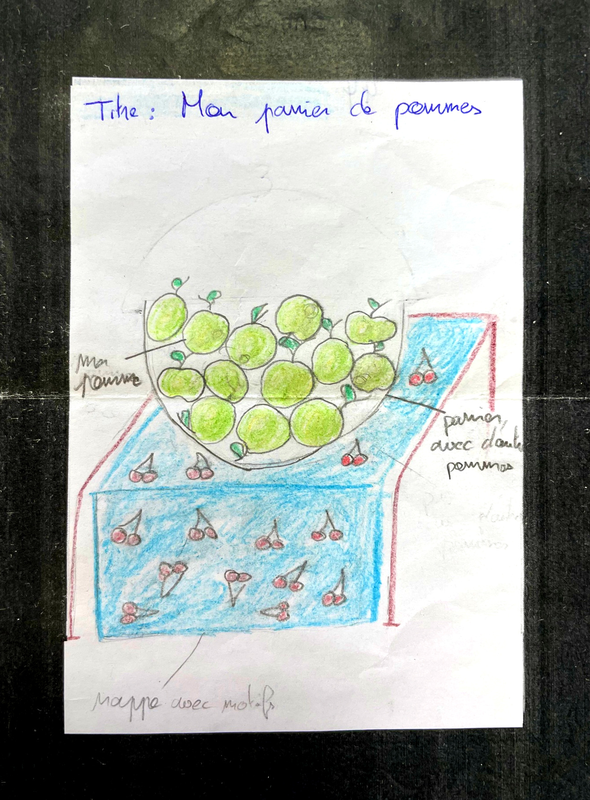 Titre : Mon panier de pommes
ma
pomme
panier,
avec d'autres
pommes
pommes
Nappe avec motifs